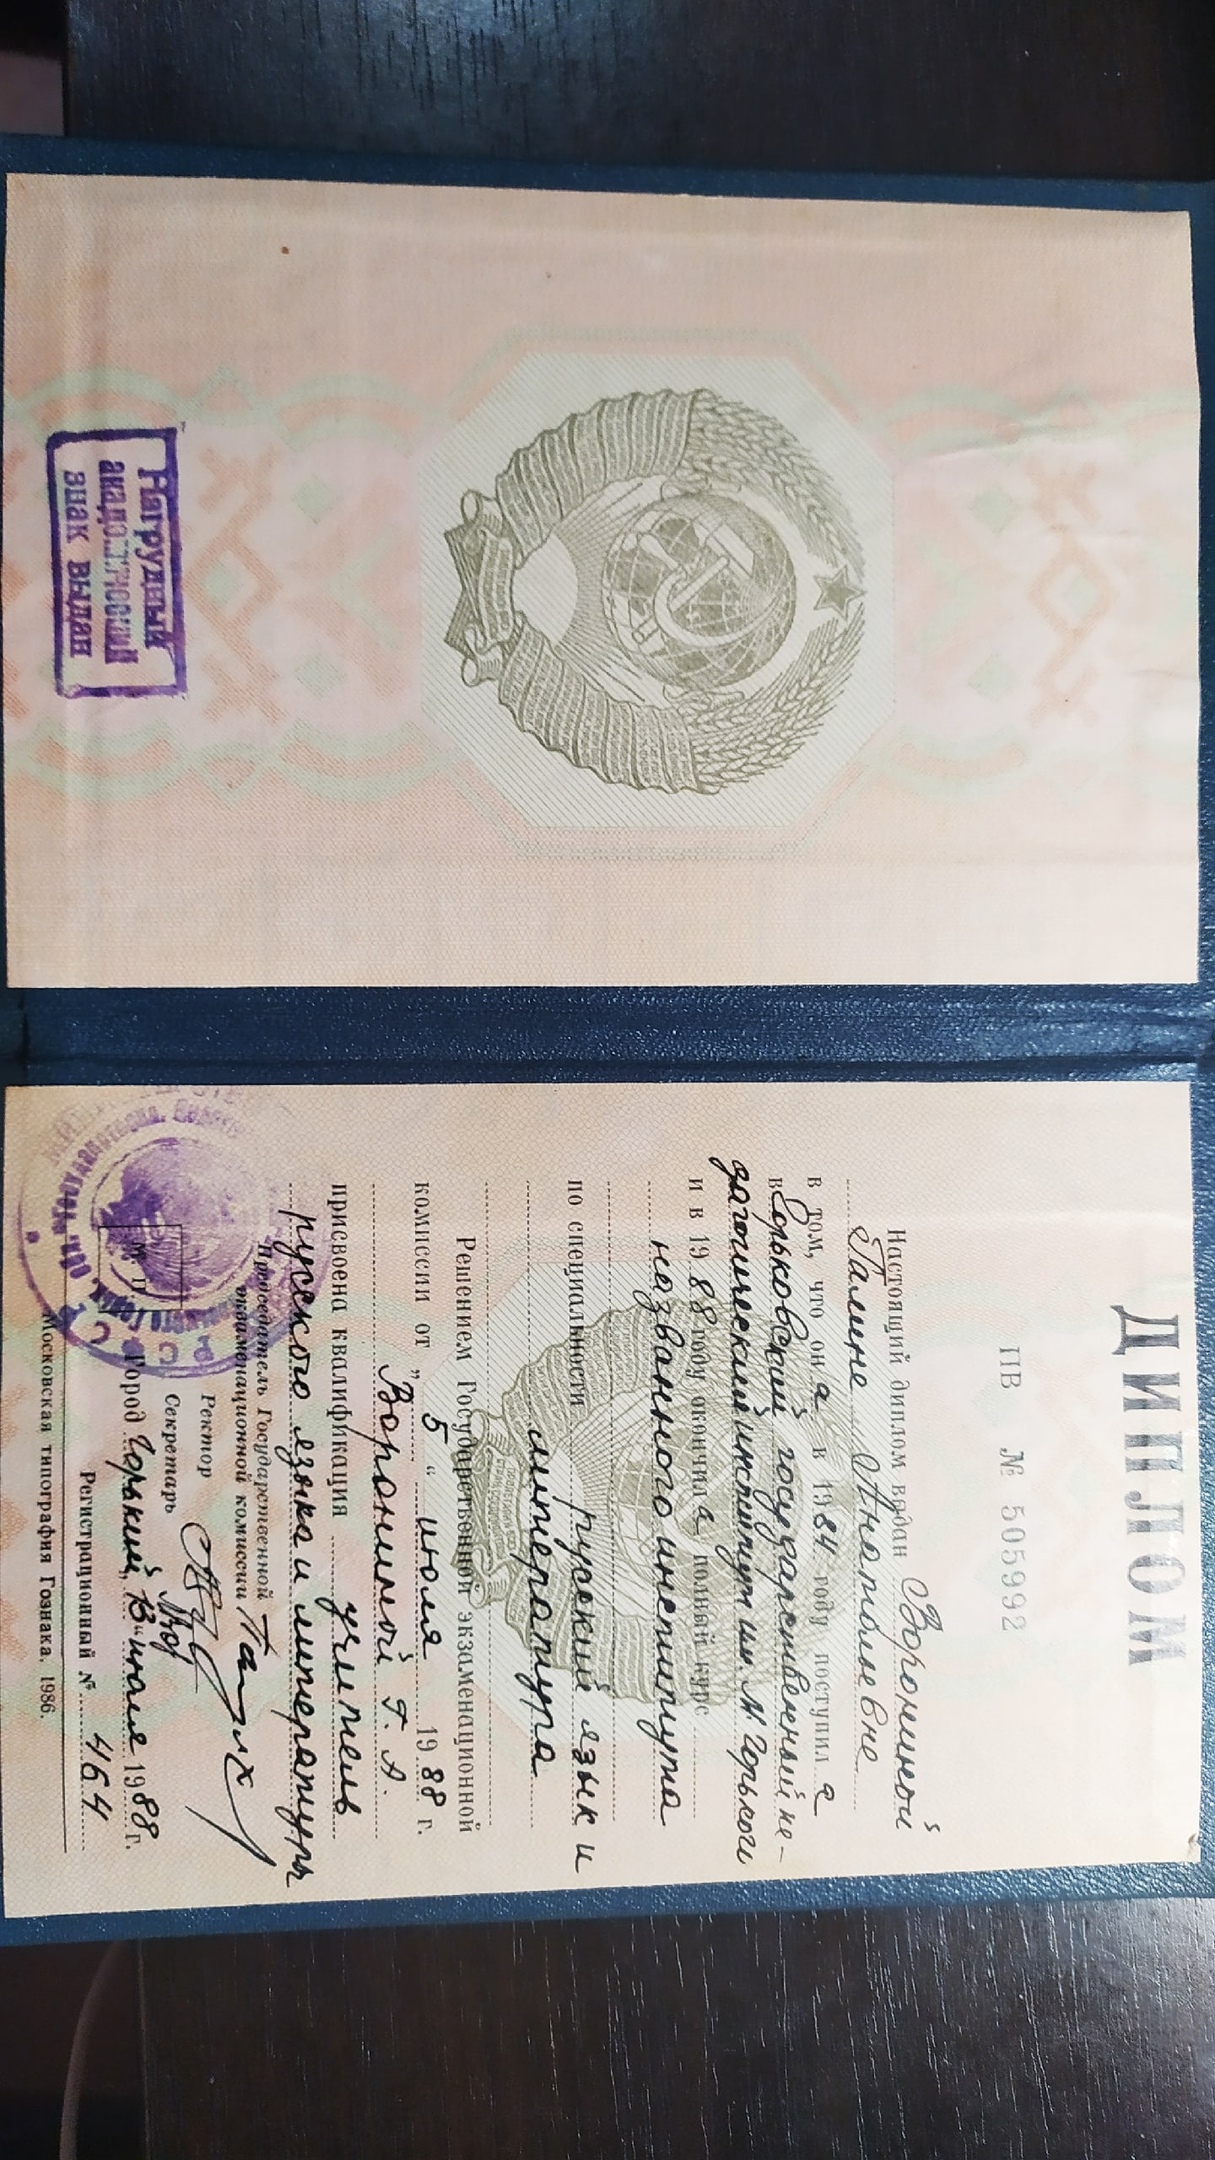 Нагрудный
академический
знак выдан
ДИПЛОМ
ПВ № 505992
Настоящий диплом выдан Ворониной
Галине Анатольевне
в том, что он а в 1984 году поступил а
в Горьковский государственный пе-
дагогический институт им. М. Горького
и в 1988 году окончил а полный курс
названного института
по специальности русский язык и
литература
Решением Государственной экзаменационной
комиссии от „5“ июля 1988 г.
Ворониной Г. А.
присвоена квалификация учитель
русского языка и литературы
Председатель Государственной
экзаменационной комиссии
Ректор
Секретарь
М. П.
Город Горький, 13 июля 1988 г.
Регистрационный № 464
Московская типография Гознака. 1986.